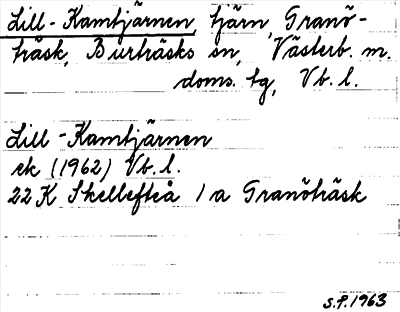 Lill-Kamtjärnen, tjärn, Granö-
träsk, Burträsks sn, Västerb. m.
doms. tg, Vb. l.
Lill-Kamtjärnen
ek (1962) Vb. l.
22 K Skellefteå 1 a Granöträsk
S.P. 1963